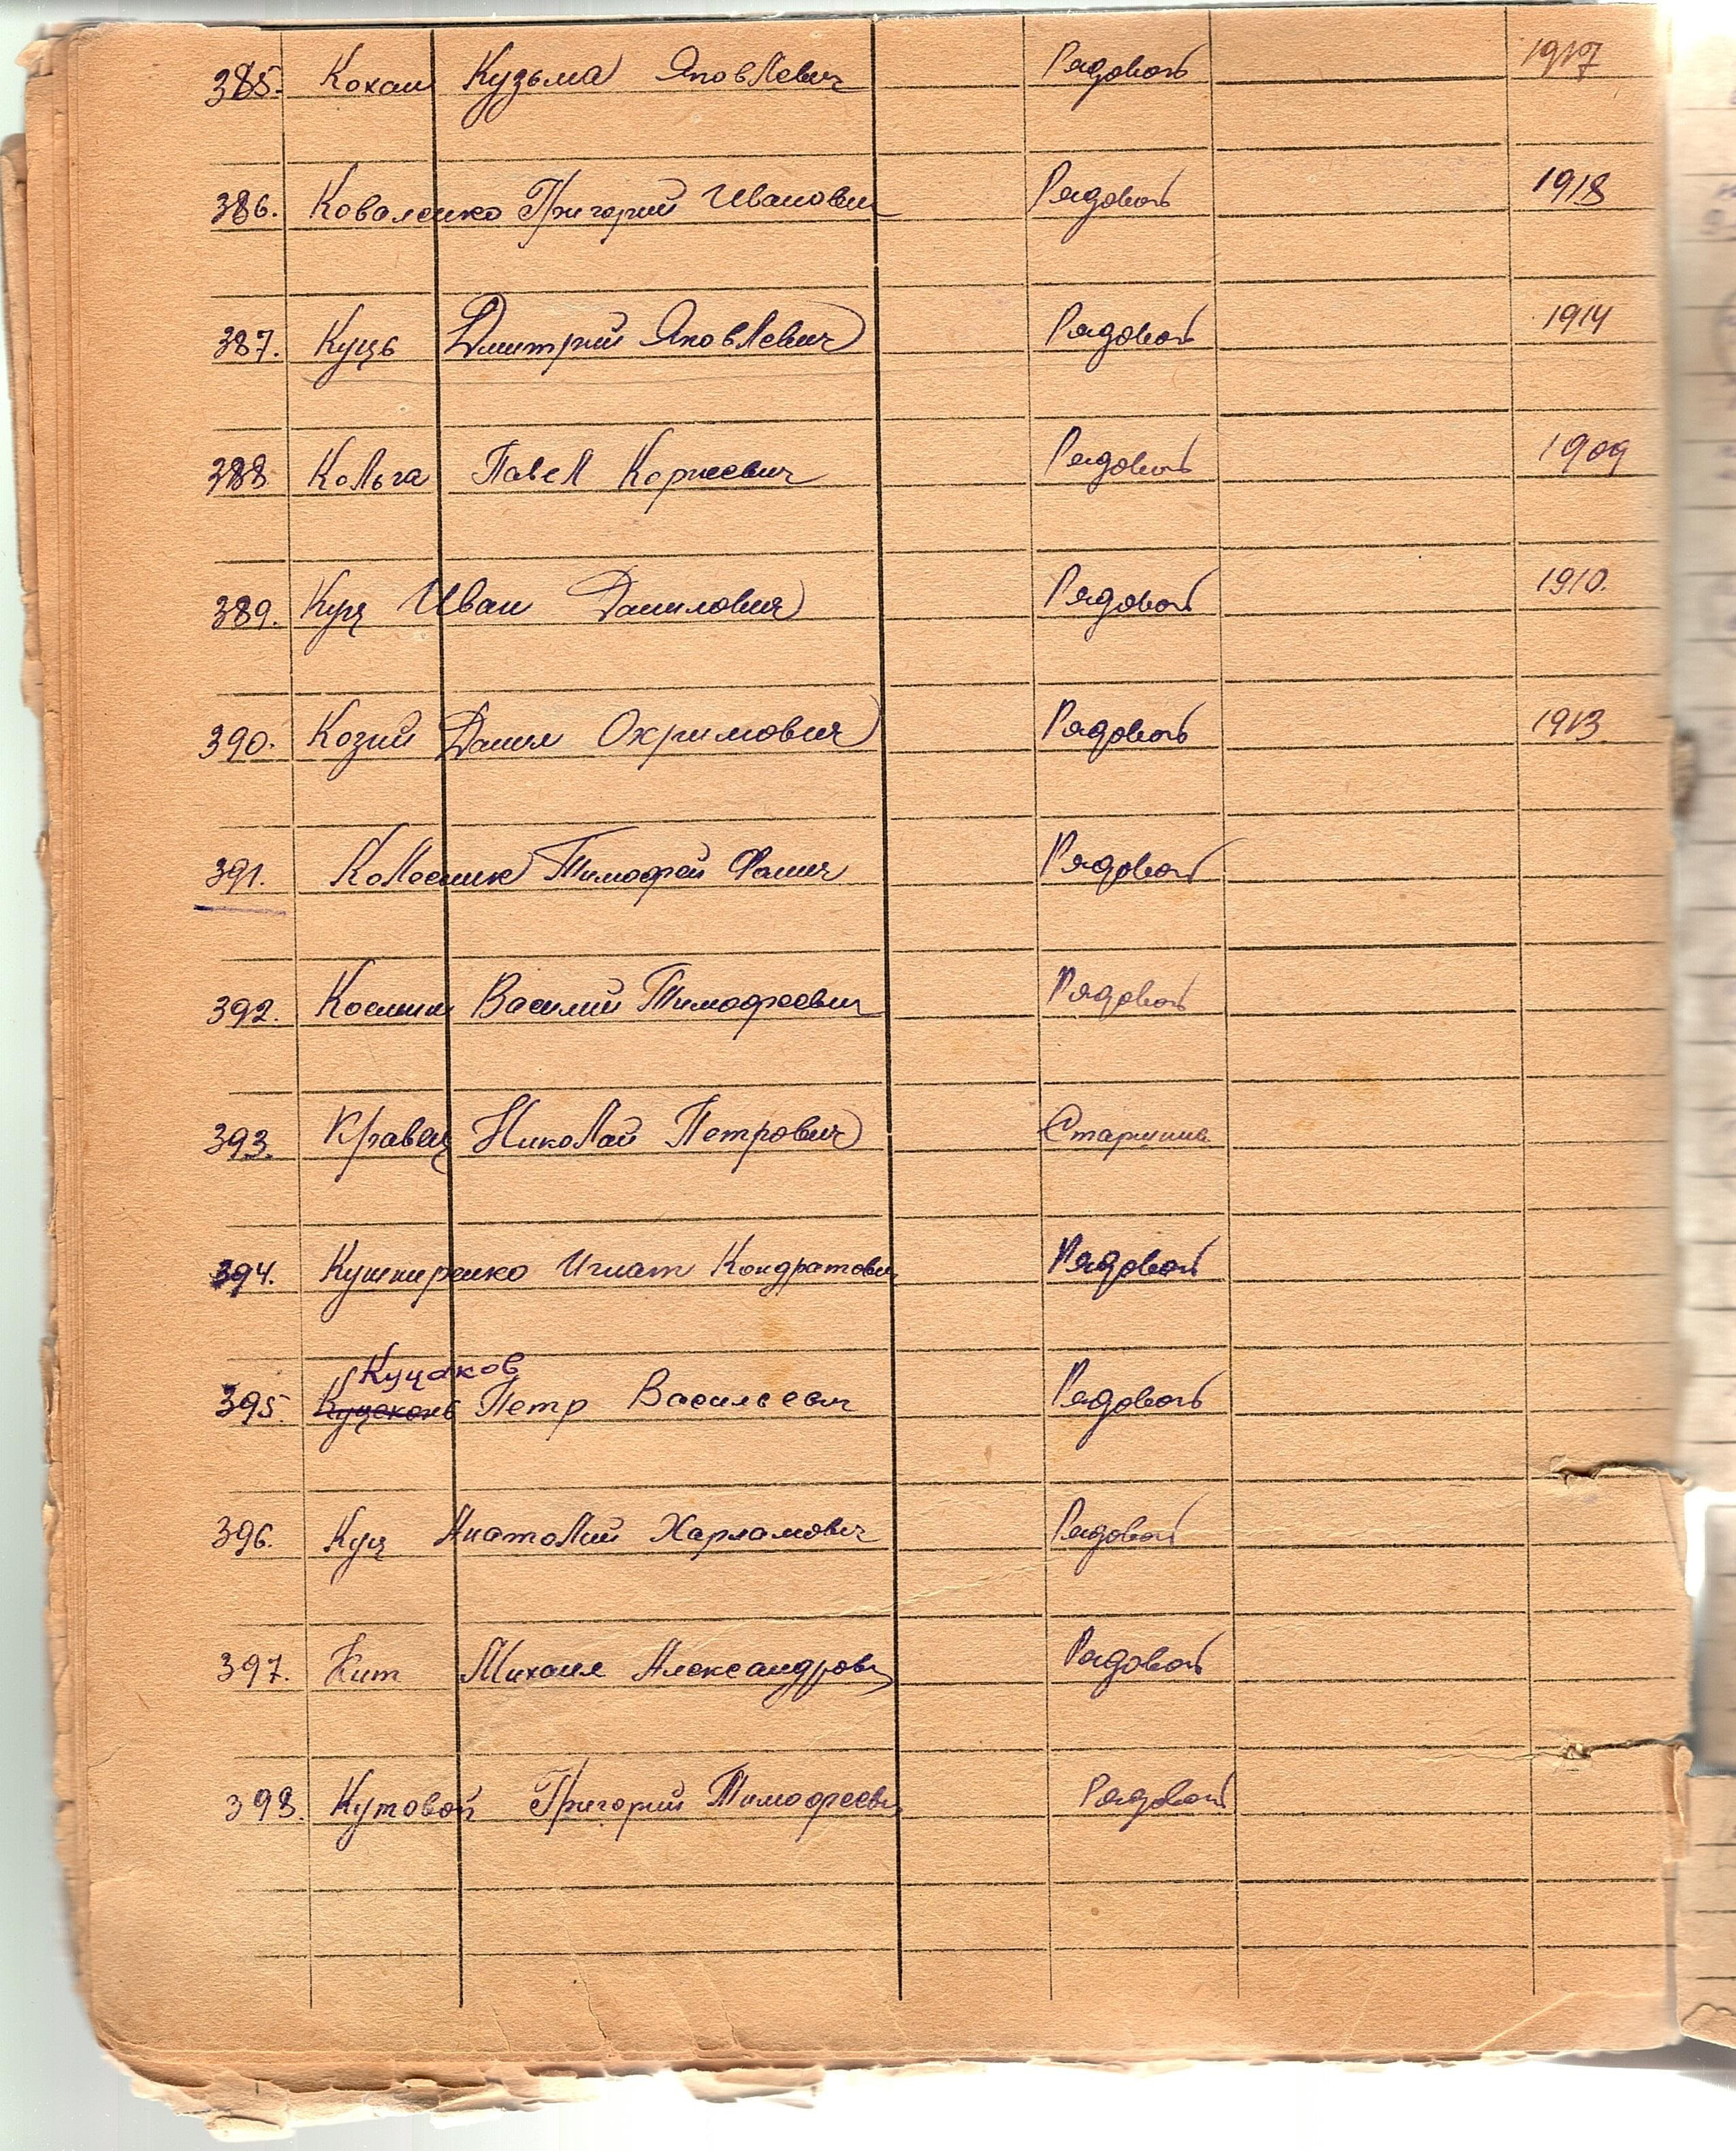 385. Кохан Кузьма Яковлевич Рядовой 1917
386. Коваленко Григорий Иванович Рядовой 1918
387. Куць Дмитрий Яковлевич Рядовой 1914
388. Кольга Павел Корнеевич Рядовой 1909
389. Куц Иван Данилович Рядовой 1910.
390. Козий Данил Охримович Рядовой 1913
391. Колесник Тимофей Фомич Рядовой
392. Василий Тимофеевич Рядовой
393. Кравец Николай Петрович Старшина
394. Кушниренко Игнат Кондратович Рядовой
Куцаков
395. Петр Васильевич Рядовой
396. Куц Анатолий Харламович Рядовой
397. Кит Михаил Александрович Рядовой
398. Кутовой Григорий Тимофеевич Рядовой